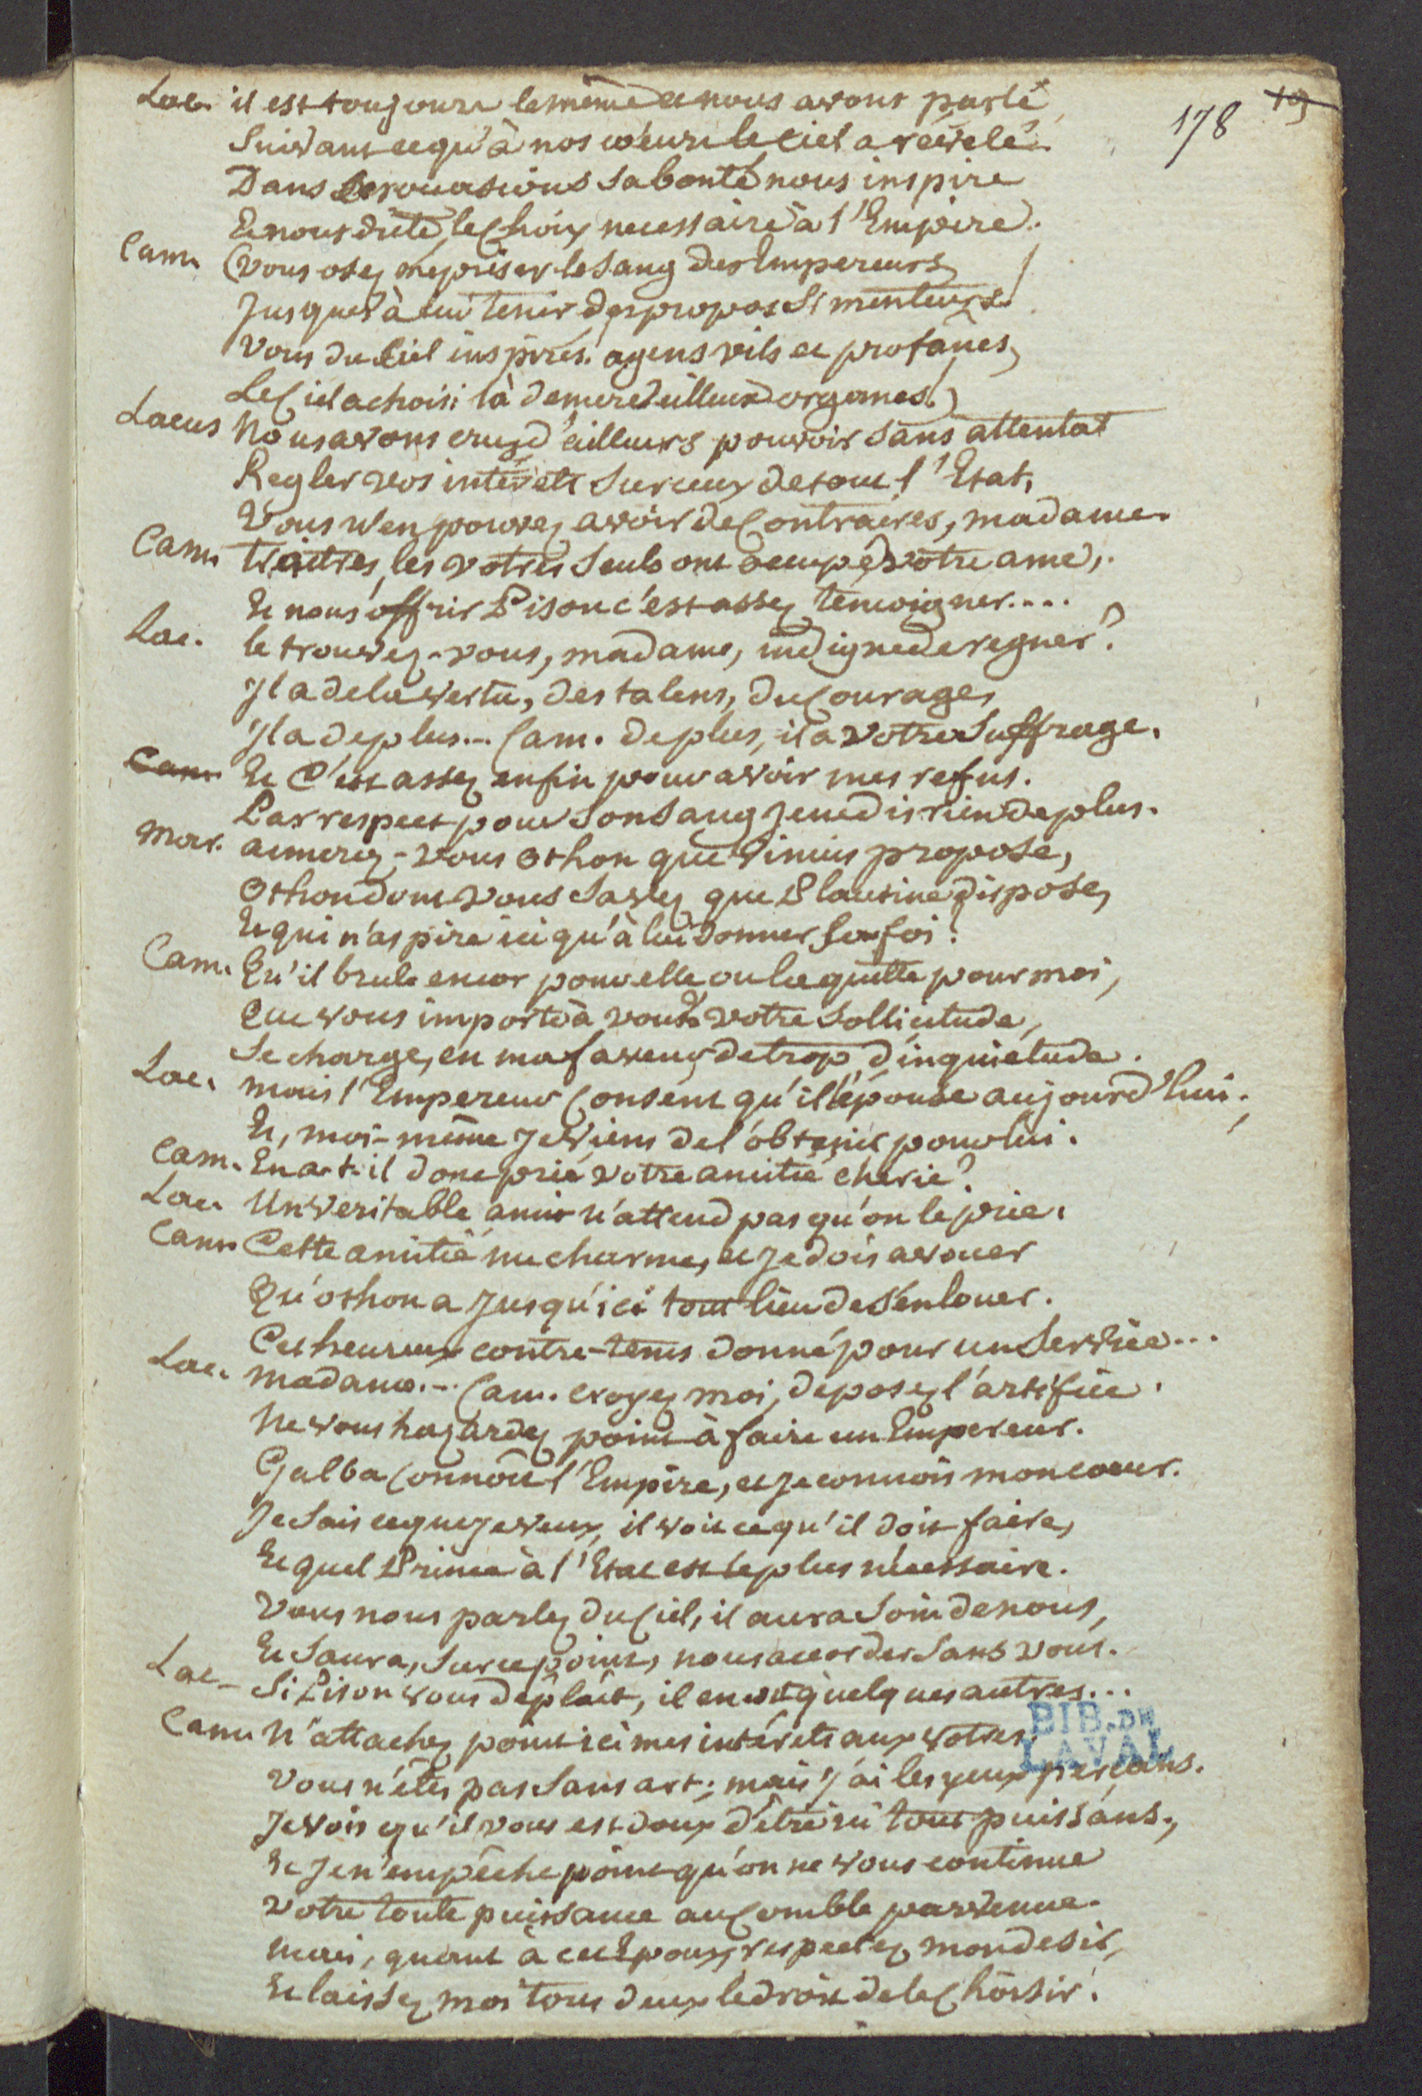 178 19
Lac. il est toujours le même et nous avons parlé
Suivant ce qu'à nos coeurs le ciel a révélé.
Dans ses occasions sa bonté nous inspire
Et nous dicte le choix necessaire à l'Empire.
Cam. (vous osez mepriser le sang des Empereurs
Jusques à lui tenir des propos si menteurs!
Vous du Ciel inspirés. agens vils et profanes,
Le Ciel a choisi là de merveilleux organes!)
Lacus Nous avons cru d'ailleurs pouvoir sans attentat
Regler vos intérêts sur ceux de tout l'Etat,
Vous n'en pouvez avoir de Contraires, madame.
Cam. traitres, les votres seuls ont occupé votre ame,
Et nous offrir Pison c'est assez temoigner....
Lac. le trouvez-vous, madame, indigne de regner?
Il a de la vertu, des talens, du Courage,
Il a de plus... Cam. de plus, il a votre Suffrage.
Cam. Et C'est assez enfin pour avoir mes refus.
Par respect pour son sang je ne dis rien de plus.
Mar. aimerez-vous Othon que Vinius propose,
Othon dont vous savez que Plautine dispose,
Et qui n'aspire ici qu'à lui donner sa foi?
Cam. Qu'il brule encor pour elle ou la quitte pour moi,
Que vous importe à vous? votre sollicitude,
Se charge, en ma faveur, de trop d'inquiétude.
Lac. mais l'Empereur Consent qu'il l'épouse aujourd'hui;
Et, moi-même je viens de l'obtenir pour lui.
Cam. En a-t-il donc prié votre amitié cherie?
Lac. Un veritable ami n'attend pas qu'on le prie.
Cam. Cette amitié me charme, et je dois avouer
Qu'othon a jusqu'ici tout lieu de s'en louer.
Cet heureux contre-tems donné pour un Service...
Lac. Madame... Cam. croyez moi, deposez l'artifice.
Ne vous hazardez point à faire un Empereur.
Galba Connoit l'Empire, et je connois mon coeur.
Je sais ce que je veux, il voit ce qu'il doit faire,
Et quel Prince à l'Etat est le plus nécessaire.
Vous nous parlez du Ciel, il aura soin de nous,
Et saura, sur ce point, nous accorder sans vous.
Lac - Si Pison vous déplait, il en est quelques autres...
Cam. N'attachez point ici mes intérêts aux votres,
Vous n'êtes pas sans art; mais j'ai les yeux perçans.
Je vois qu'il vous est doux d'être ici tout puissans,
Et je n'empêche point qu'on ne vous continue
Votre toute puissance au Comble parvenue.
Mais, quant à cet Epoux, respectez mon desir,
Et laissez moi tous deux le droit de le Choisir.
BIB. DE
LAVAL